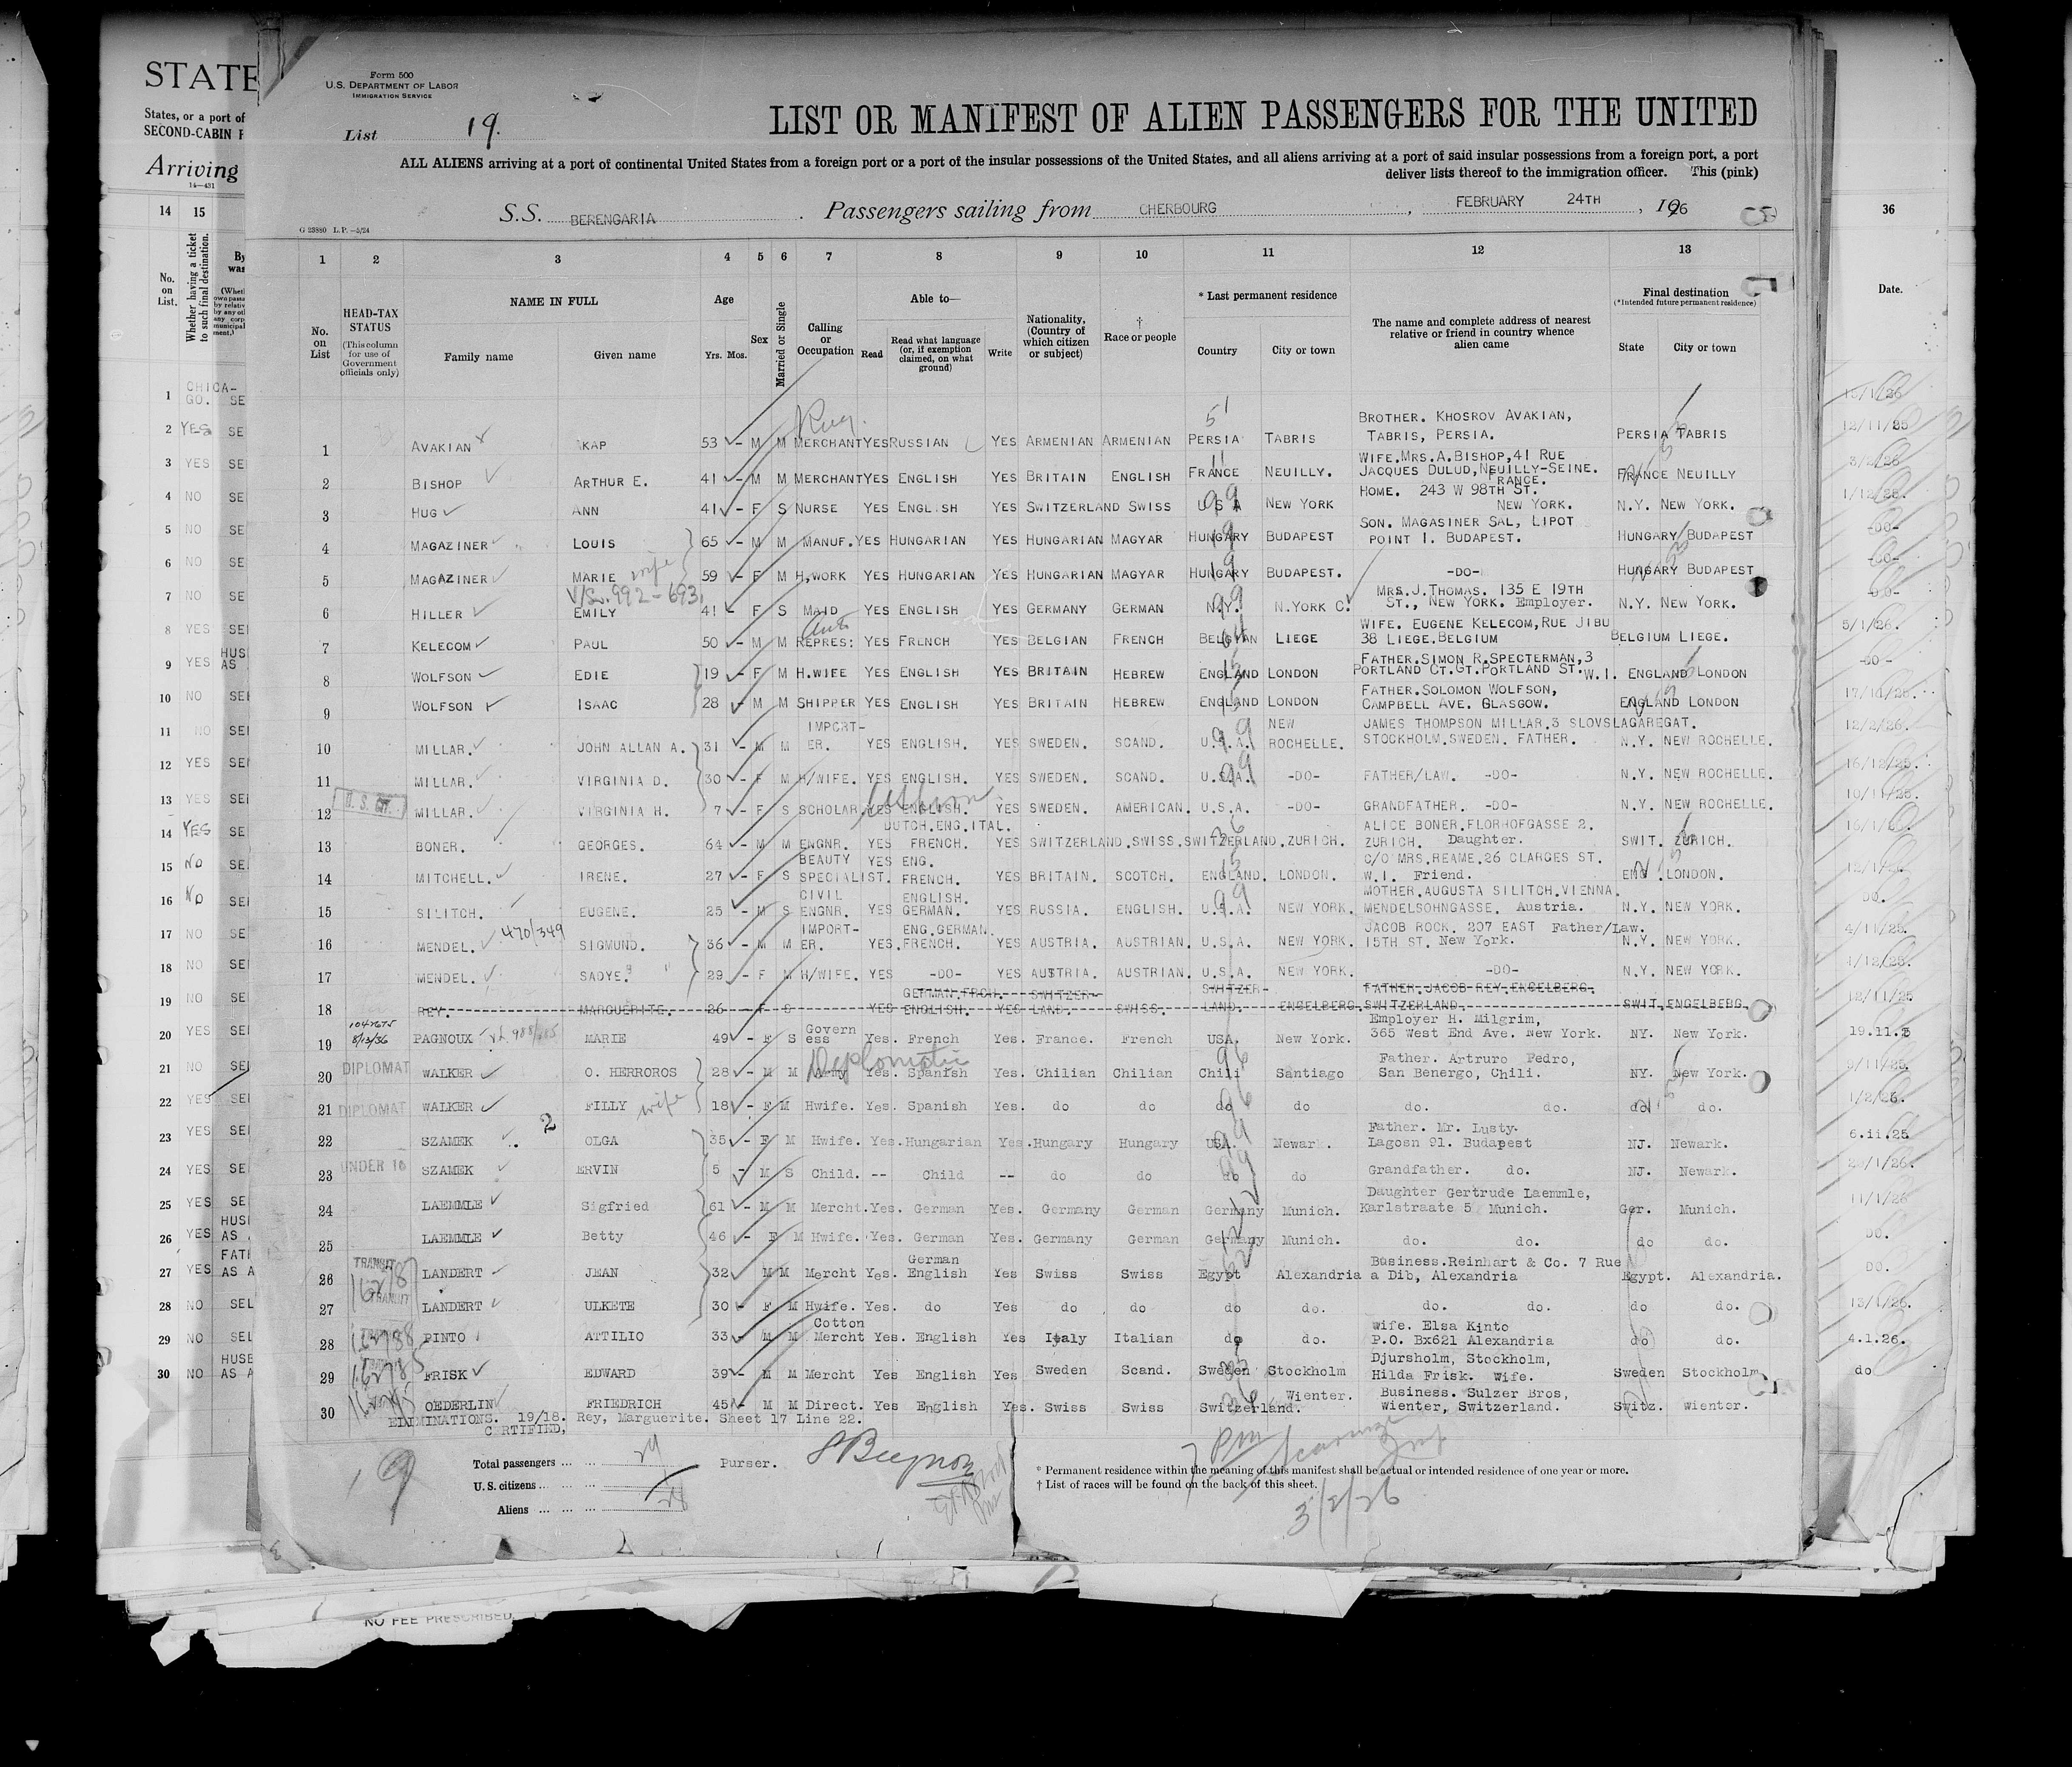 STATE
States, or a port of
SECOND-CABIN
Arriving
14—431
Form 500
U.S. DEPARTMENT OF LABOR
IMMIGRATION SERVICE
List 19.
LIST OR MANIFEST OF ALIEN PASSENGERS FOR THE UNITED
ALL ALIENS arriving at a port of continental United States from a foreign port or a port of the insular possessions of the United States, and all aliens arriving at a port of said insular possessions from a foreign port, a port
deliver lists thereof to the immigration officer. This (pink)
S.S. BERENGARIA. Passengers sailing from CHERBOURG, FEBRUARY 24TH, 1926
G 23880 L.P.—5/24
14 15
No. on List.
Whether having a ticket to such final destination.
1 2 3 4 5 6 7 8 9 10 11 12 13
36
Date.
No. on List
HEAD-TAX STATUS
(This column for use of Government officials only)
NAME IN FULL
Family name Given name
Age
Yrs. Mos.
Sex
Married or Single
Calling or Occupation
Able to—
Read
Read what language (or, if exemption claimed, on what ground)
Write
Nationality, (Country of which citizen or subject)
† Race or people
* Last permanent residence
Country City or town
The name and complete address of nearest relative or friend in country whence alien came
Final destination
(*Intended future permanent residence)
State City or town
1 AVAKIAN AKAP 53 - M M MERCHANT YES RUSSIAN YES ARMENIAN ARMENIAN PERSIA TABRIS BROTHER. KHOSROV AVAKIAN, TABRIS, PERSIA. PERSIA TABRIS
2 BISHOP ARTHUR E. 41 - M M MERCHANT YES ENGLISH YES BRITAIN ENGLISH FRANCE NEUILLY. WIFE.MRS.A.BISHOP,41 RUE JACQUES DULUD,NEUILLY-SEINE. FRANCE. FRANCE NEUILLY
3 HUG ANN 41 - F S NURSE YES ENGLISH YES SWITZERLAND SWISS U S A NEW YORK HOME. 243 W 98TH ST. NEW YORK. N.Y. NEW YORK.
4 MAGAZINER LOUIS 65 - M M MANUF. YES HUNGARIAN YES HUNGARIAN MAGYAR HUNGARY BUDAPEST SON. MAGASINER SAL, LIPOT POINT I. BUDAPEST. HUNGARY BUDAPEST
5 MAGAZINER MARIE wife 59 - F M H,WORK YES HUNGARIAN YES HUNGARIAN MAGYAR HUNGARY BUDAPEST. -DO- HUNGARY BUDAPEST
6 HILLER EMILY 41 - F S MAID YES ENGLISH YES GERMANY GERMAN N.Y. N.YORK C. MRS.J.THOMAS. 135 E 19TH ST., NEW YORK. Employer. N.Y. NEW YORK.
7 KELECOM PAUL 50 - M M REPRES: YES FRENCH YES BELGIAN FRENCH BELGIAN LIEGE WIFE. EUGENE KELECOM,RUE JIBU 38 LIEGE.BELGIUM BELGIUM LIEGE.
8 WOLFSON EDIE 19 - F M H.WIFE YES ENGLISH YES BRITAIN HEBREW ENGLAND LONDON FATHER.SIMON R.SPECTERMAN,3 PORTLAND CT.GT.PORTLAND ST.W.I. ENGLAND LONDON
9 WOLFSON ISAAC 28 - M M SHIPPER YES ENGLISH YES BRITAIN HEBREW ENGLAND LONDON FATHER.SOLOMON WOLFSON, CAMPBELL AVE. GLASGOW. ENGLAND LONDON
10 MILLAR. JOHN ALLAN A. 31 - M M IMPORT-ER. YES ENGLISH. YES SWEDEN. SCAND. U.S.A. NEW ROCHELLE. JAMES THOMPSON MILLAR.3 SLOVSLAGAREGAT. STOCKHOLM.SWEDEN. FATHER. N.Y. NEW ROCHELLE.
11 MILLAR. VIRGINIA D. 30 - F M H/WIFE. YES ENGLISH. YES SWEDEN. SCAND. U.S.A. -DO- FATHER/LAW. -DO- N.Y. NEW ROCHELLE.
12 U.S. CIT. MILLAR. VIRGINIA H. 7 - F S SCHOLAR. YES ENGLISH. YES SWEDEN. AMERICAN. U.S.A. -DO- GRANDFATHER. -DO- N.Y. NEW ROCHELLE.
13 BONER. GEORGES. 64 - M M ENGNR. YES DUTCH.ENG.ITAL. FRENCH. YES SWITZERLAND.SWISS.SWITZERLAND.ZURICH. ALICE BONER.FLORHOFGASSE 2. ZURICH. Daughter. SWIT. ZURICH.
14 MITCHELL. IRENE. 27 - F S BEAUTY SPECIALIST. YES ENG. FRENCH. YES BRITAIN. SCOTCH. ENGLAND. LONDON. C/O MRS.REAME.26 CLARGES ST. W.I. Friend. ENG. LONDON.
15 SILITCH. EUGENE. 25 - M S CIVIL ENGNR. YES ENGLISH. GERMAN. YES RUSSIA. ENGLISH. U.S.A. NEW YORK. MOTHER.AUGUSTA SILITCH.VIENNA. MENDELSOHNGASSE. Austria. N.Y. NEW YORK.
16 MENDEL. 470/349 SIGMUND. 36 - M M IMPORT-ER. YES ENG.GERMAN. FRENCH. YES AUSTRIA. AUSTRIAN. U.S.A. NEW YORK. JACOB ROCK. 207 EAST Father/Law. 15TH ST. New York. N.Y. NEW YORK.
17 MENDEL. SADYE. 29 - F M H/WIFE. YES -DO- YES AUSTRIA. AUSTRIAN. U.S.A. NEW YORK. -DO- N.Y. NEW YORK.
18 REY. MARGUERITE. 26 - F S YES GERMAN.FRCH. ENGLISH. YES SWITZER-LAND. SWISS. SWITZER-LAND. ENGELBERG. FATHER.JACOB REY.ENGELBERG. SWITZERLAND. SWIT. ENGELBERG.
19 PAGNOUX MARIE 49 - F S Governess Yes. French Yes. France. French USA. New York. Employer H. Milgrim, 365 West End Ave. New York. NY. New York.
20 DIPLOMAT WALKER O. HERROROS 28 - M M Diplomatic Army Yes. Spanish Yes. Chilian Chilian Chili Santiago Father. Artruro Pedro, San Benergo, Chili. NY. New York.
21 DIPLOMAT WALKER FILLY wife 18 - F M Hwife. Yes. Spanish Yes. do do do do do. do. do do.
22 SZAMEK OLGA 35 - F M Hwife. Yes. Hungarian Yes. Hungary Hungary USA. Newark. Father. Mr. Lusty. Lagosn 91. Budapest NJ. Newark.
23 UNDER 16 SZAMEK ERVIN 5 - M S Child. -- Child -- do do do do Grandfather. do. NJ. Newark.
24 LAEMMLE Sigfried 61 - M M Mercht. Yes. German Yes. Germany German Germany Munich. Daughter Gertrude Laemmle, Karlstraate 5 Munich. Ger. Munich.
25 LAEMMLE Betty 46 - F M Hwife. Yes. German Yes. Germany German Germany Munich. do. do. do do.
26 TRANSIT LANDERT JEAN 32 M M Mercht Yes. German English Yes Swiss Swiss Egypt Alexandria Business.Reinhart & Co. 7 Rue a Dib, Alexandria Egypt. Alexandria.
27 TRANSIT LANDERT ULKETE 30 - F M Hwife. Yes. do Yes do do do do. do. do. do do.
28 PINTO ATTILIO 33 - M M Cotton Mercht Yes. English Yes Italy Italian do do. wife. Elsa Kinto P.O. Bx621 Alexandria do do.
29 FRISK EDWARD 39 - M M Mercht Yes English Yes Sweden Scand. Sweden Stockholm Djursholm, Stockholm, Hilda Frisk. Wife. Sweden Stockholm
30 OEDERLIN FRIEDRICH 45 - M M Direct. Yes English Yes. Swiss Swiss Switzerland. Wienter. Business. Sulzer Bros, Wienter, Switzerland. Switz. Wienter.
ELIMINATIONS. 19/18. Rey, Marguerite. Sheet 17 Line 22.
CERTIFIED,
Total passengers
U.S. citizens
Aliens
Purser.
* Permanent residence within the meaning of this manifest shall be actual or intended residence of one year or more.
† List of races will be found on the back of this sheet.
3/2/26
NO FEE PRESCRIBED